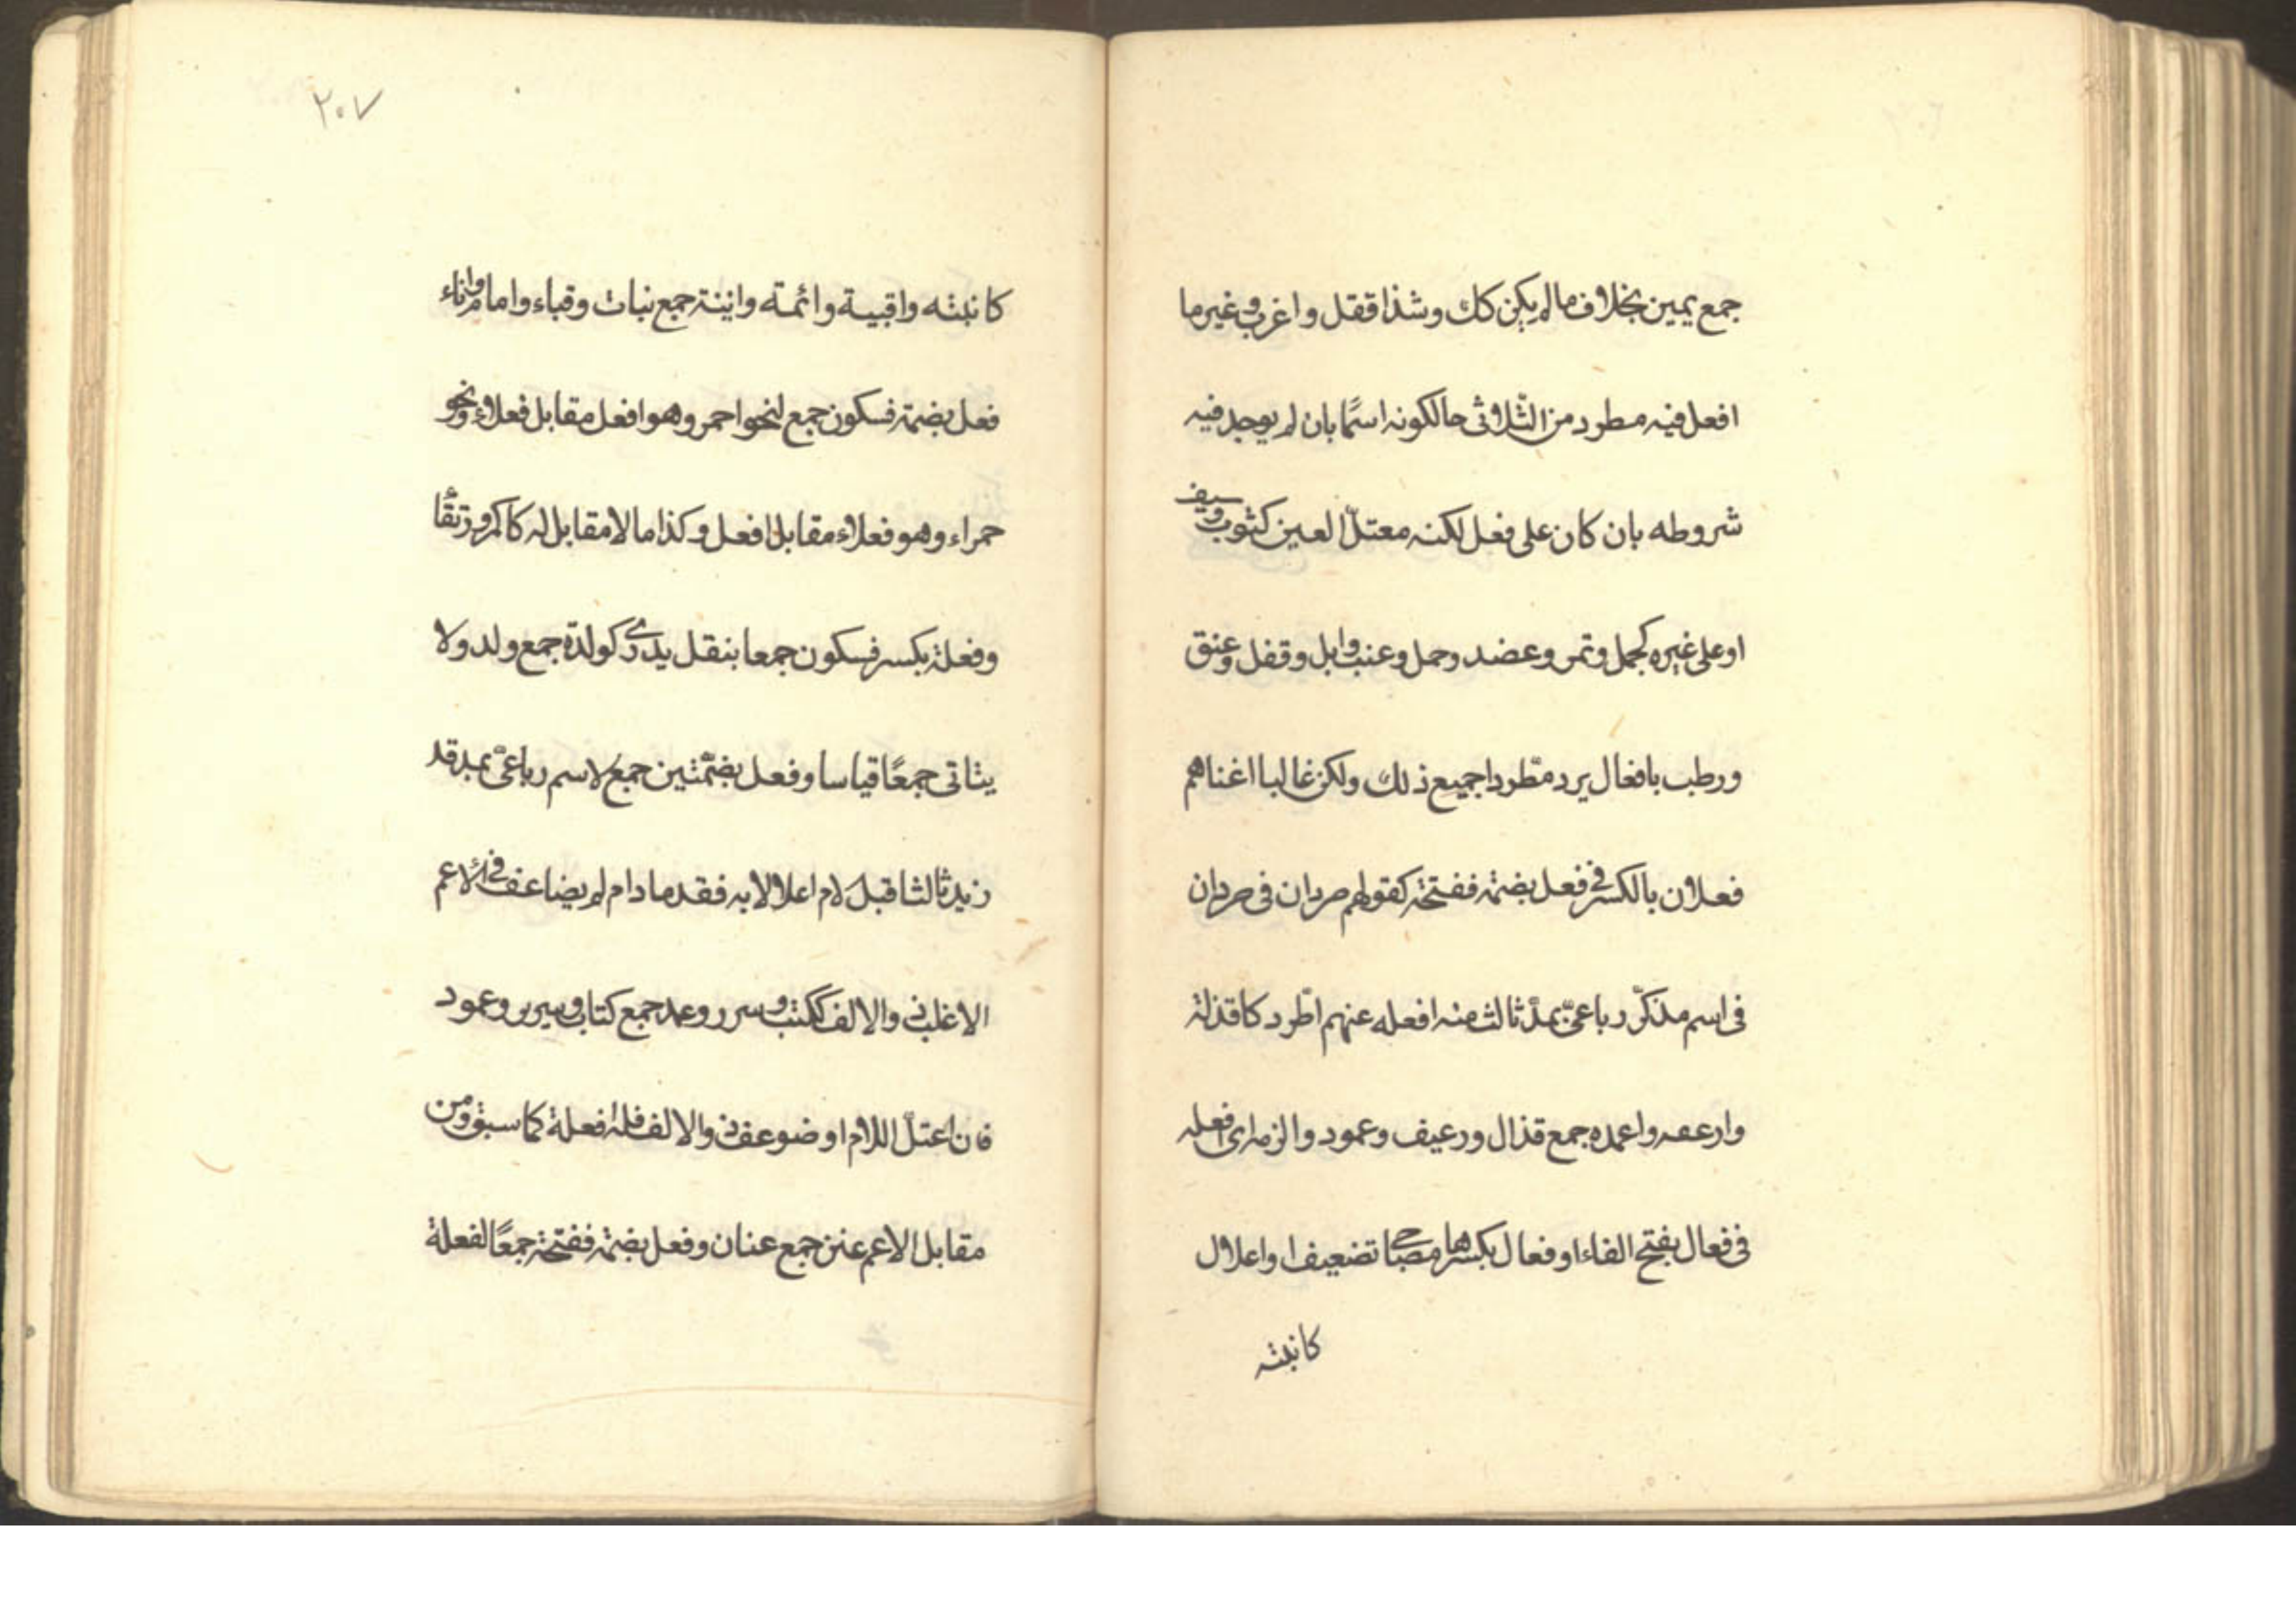 جمع يمين بخلاف ما لم يكن كك وشذ اقفل واغرب وغير ما
افعل فيه مطرد من الثّلاثى حالكونه اسمًا بان لم يوجد فيه
شروطه بان كان على فعل لكنه معتلّ العين كثوب وسيف
او على غيره كجمل وتمر وعضد وحمل وعنب وابل وقفل وعنق
ورطب بافعال يرد مطّردا جميع ذلك ولكن غالبا اغناهم
فعلان بالكسر فى فعل بضمّة ففتحة كقولهم صردان فى صردان
فى اسم مذكّر رباعىّ بمدّ ثالث منه افعله عنهم اطّرد كاقذلة
وارعفه واعمده جمع قذال ورعيف وعمود والزمه اى افعله
فى فعال بفتح الفاء او فعال بكسرها مصاحبى تضعيف او اعلال
كانبته
٢٠٧
كانبته واقبية وائمة وانينة جمع نبات وقباء وامام واناء
فعل بضمة فسكون جمع لنحو احمر وهو افعل مقابل فعلاء ونحو
حمراء وهو فعلاء مقابل افعل وكذا ما لا مقابل له كاكمر ورتقا
وفعلة بكسر فسكون جمعا بنقل يدرى كولدة جمع ولد ولا
يتاتى جمعًا قياسا وفعل بضمّتين جمع لاسم رباعىّ بمد قد
زيد ثالثا قبل لام اعلالا به فقد ما دام لم يضاعف فى الاعم
الاغلب ذو الالف ككتب وسرر وعمد جمع كتاب وسرير وعمود
فان اعتلّ اللام او ضوعف ذو الالف فله افعلة كما سبق ومن
مقابل الاعم عنن جمع عنان وفعل بضمة ففتحة جمعًا لفعلة